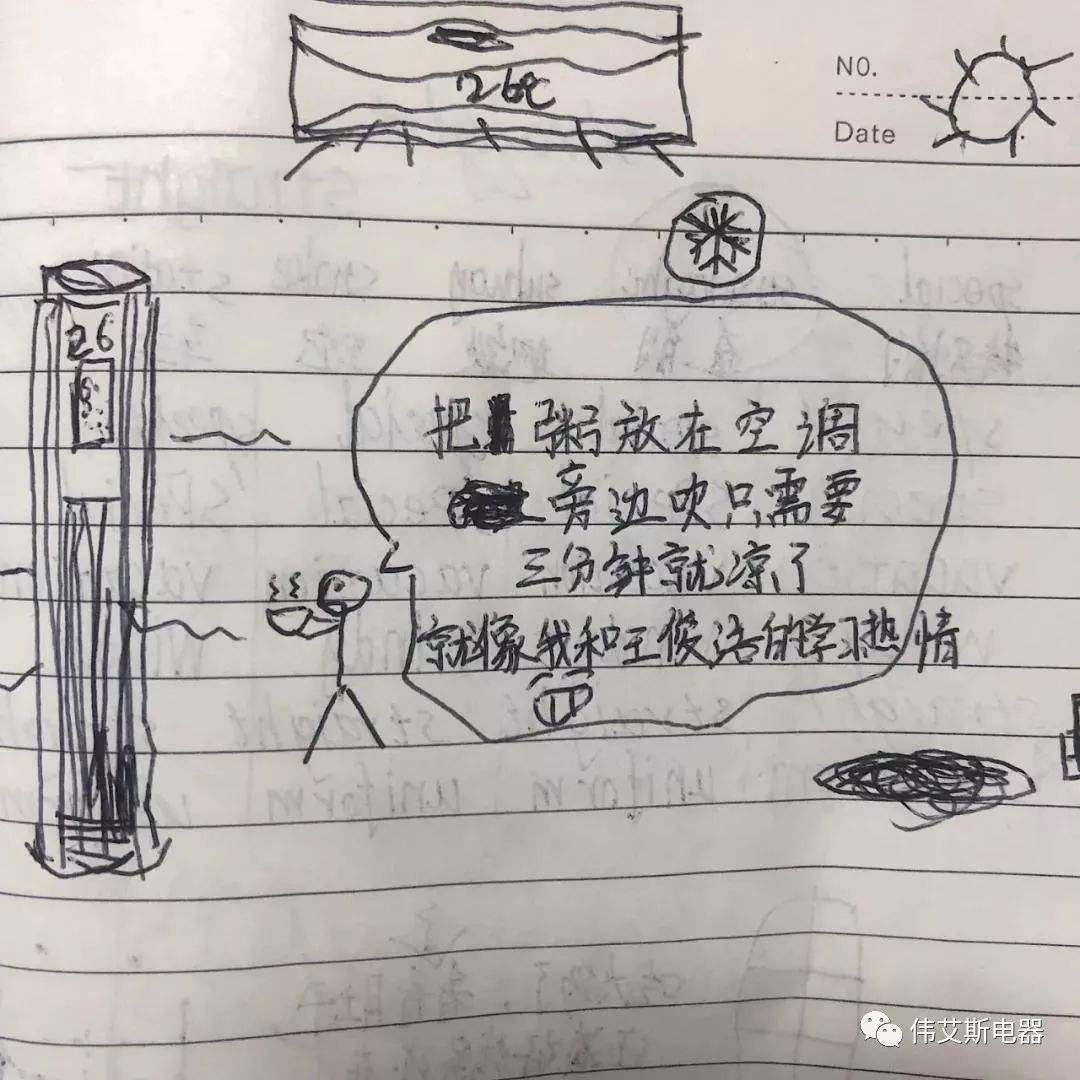 26℃
NO.
Date
26
把粥放在空调
旁边吹只需要
三分钟就凉了
就像我和王俊洁的学习热情
伟艾斯电器